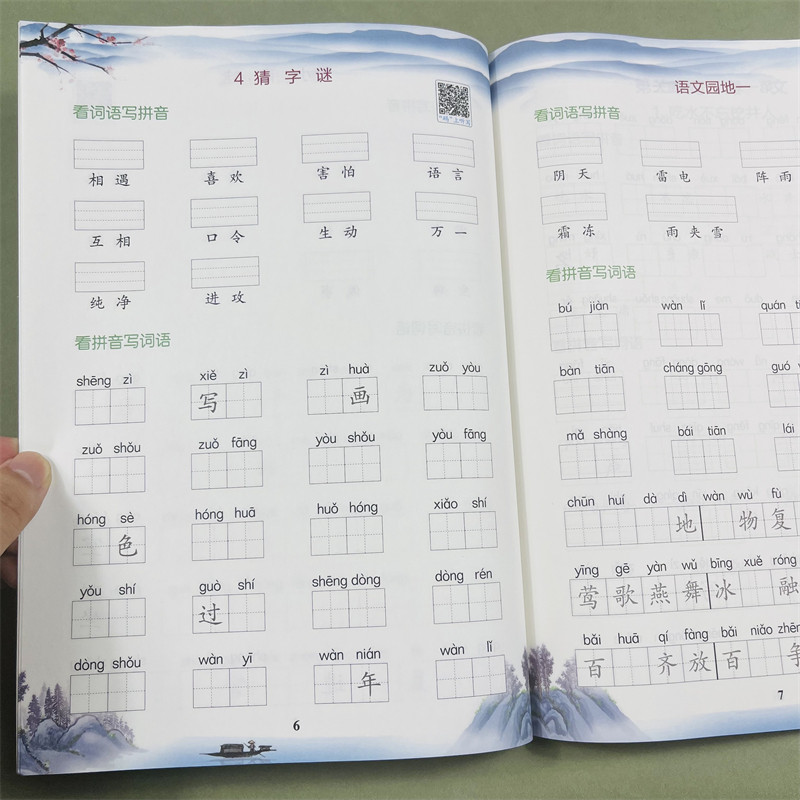 4 猜字谜
"码"上听写
看词语写拼音
相遇 喜欢 害怕 语言
互相 口令 生动 万一
纯净 进攻
看拼音写词语
shēng zì xiě zì zì huà zuǒ yòu
写 画
zuǒ shǒu zuǒ fāng yòu shǒu yòu fāng
hóng sè hóng huā huǒ hóng xiǎo shí
色
yǒu shí guò shí shēng dòng dòng rén
过
dòng shǒu wàn yī wàn nián wàn lǐ
年
6
语文园地一
看词语写拼音
阴天 雷电 阵雨
霜冻 雨夹雪
看拼音写词语
bú jiàn wàn lǐ quán
bàn tiān cháng gōng guó
mǎ shàng bái tiān lái
chūn huí dà dì wàn wù fù
地 物复
yīng gē yàn wǔ bīng xuě róng
莺歌燕舞冰 融
bǎi huā qí fàng bǎi niǎo zhēng
百 齐放百 争
7